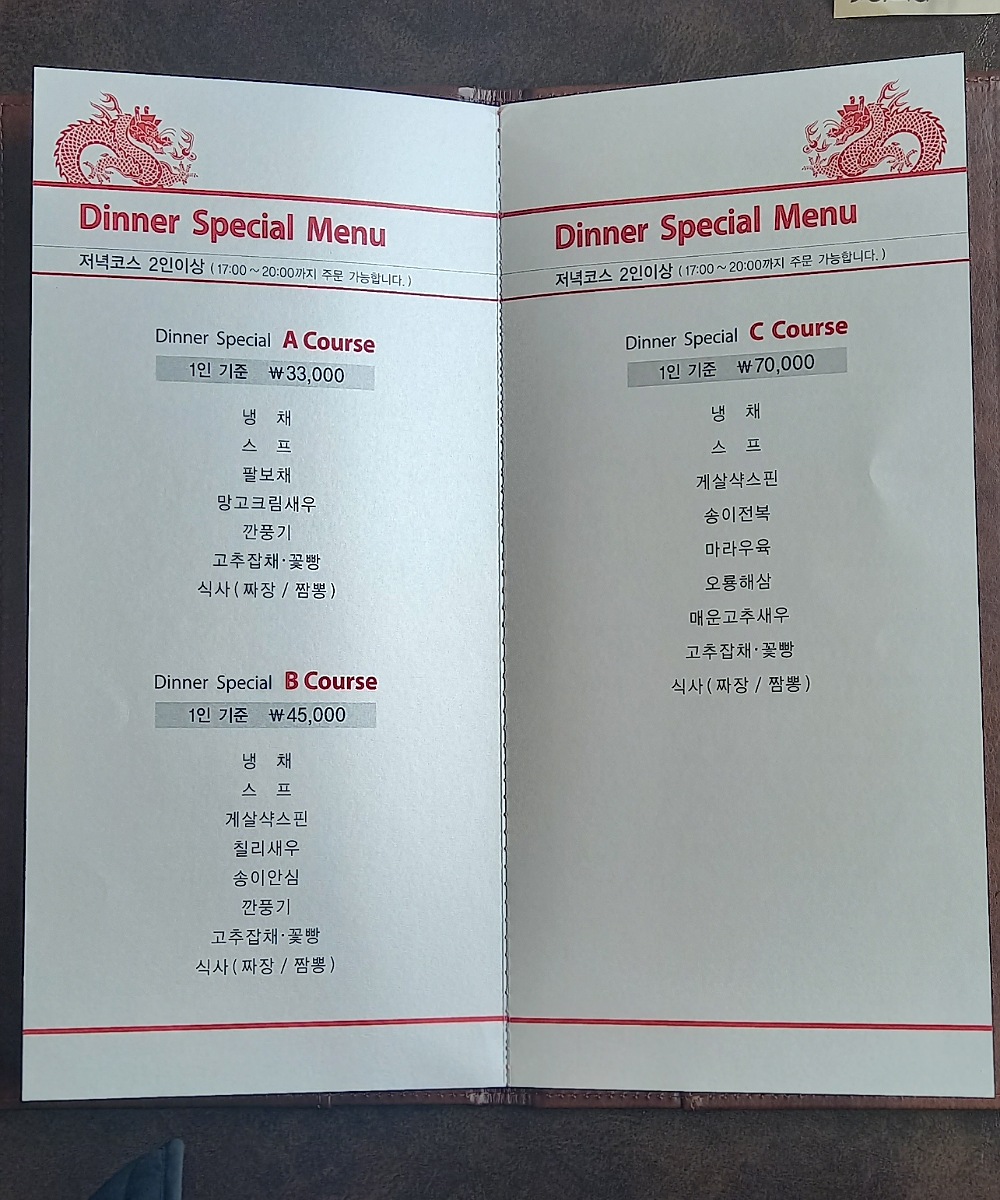 Dinner Special Menu
저녁코스 2인이상 (17:00~20:00까지 주문 가능합니다.)
Dinner Special A Course
1인 기준 ₩33,000
냉 채
스 프
팔보채
망고크림새우
깐풍기
고추잡채·꽃빵
식사(짜장 / 짬뽕)
Dinner Special B Course
1인 기준 ₩45,000
냉 채
스 프
게살샥스핀
칠리새우
송이안심
깐풍기
고추잡채·꽃빵
식사(짜장 / 짬뽕)
Dinner Special Menu
저녁코스 2인이상 (17:00~20:00까지 주문 가능합니다.)
Dinner Special C Course
1인 기준 ₩70,000
냉 채
스 프
게살샥스핀
송이전복
마라우육
오룡해삼
매운고추새우
고추잡채·꽃빵
식사(짜장 / 짬뽕)